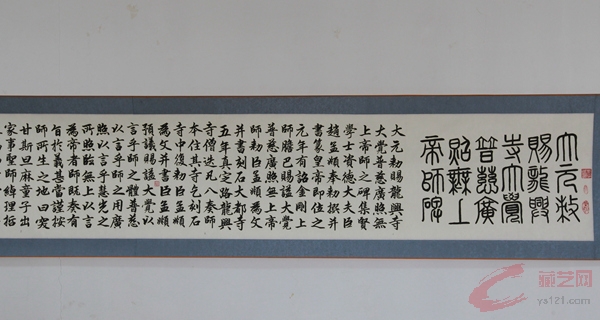 大元敕
賜龍興
寺大覺
普慈廣
照無上
帝師碑
大元勅賜龍興寺
大覺普慈廣照無
上帝師之碑集賢
學士資德大夫臣
趙孟頫奉勅撰并
書篆皇帝即位之
元年有詔金剛上
師膽巴賜謚大覺
普慈廣照無上帝
師勅臣孟頫為文
并書刻石大都寺
五年真定路龍興
寺僧迭凡八奏師
本住其寺乞刻石
寺中復勅臣孟頫
為文并書臣孟頫
預議賜謚大覺以
言乎師之體普慈
以言乎師之用廣
照以言乎慧光之
所照臨無上以言
為帝者師既奏有
旨於義甚當謹按
師所生之地曰突
甘斯旦麻童子出
家事聖師綽理哲
藏艺网
ys121.com